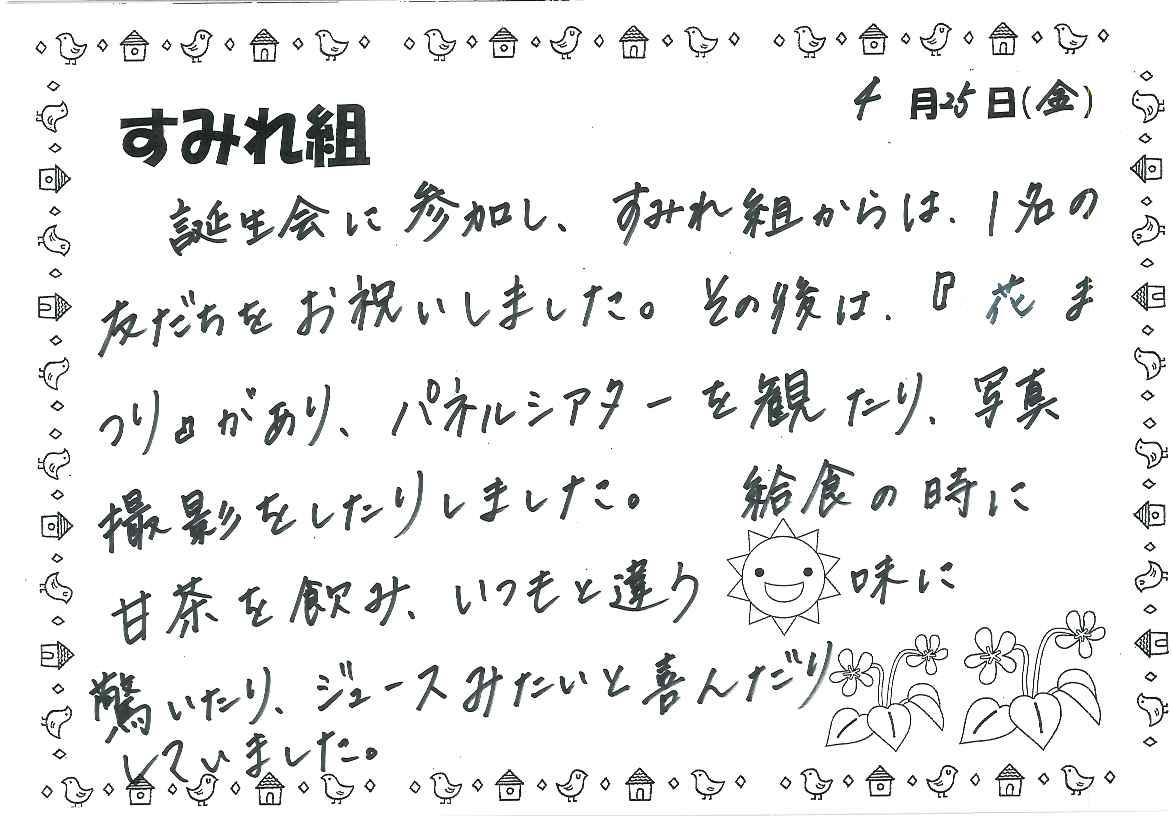 4月25日(金)
すみれ組
誕生会に参加し、すみれ組からは、1名の
友だちをお祝いしました。その後は、『花ま
つり』があり、パネルシアターを観たり、写真
撮影をしたりしました。 給食の時に
甘茶を飲み、いつもと違う味に
驚いたり、ジュースみたいと喜んだり
していました。